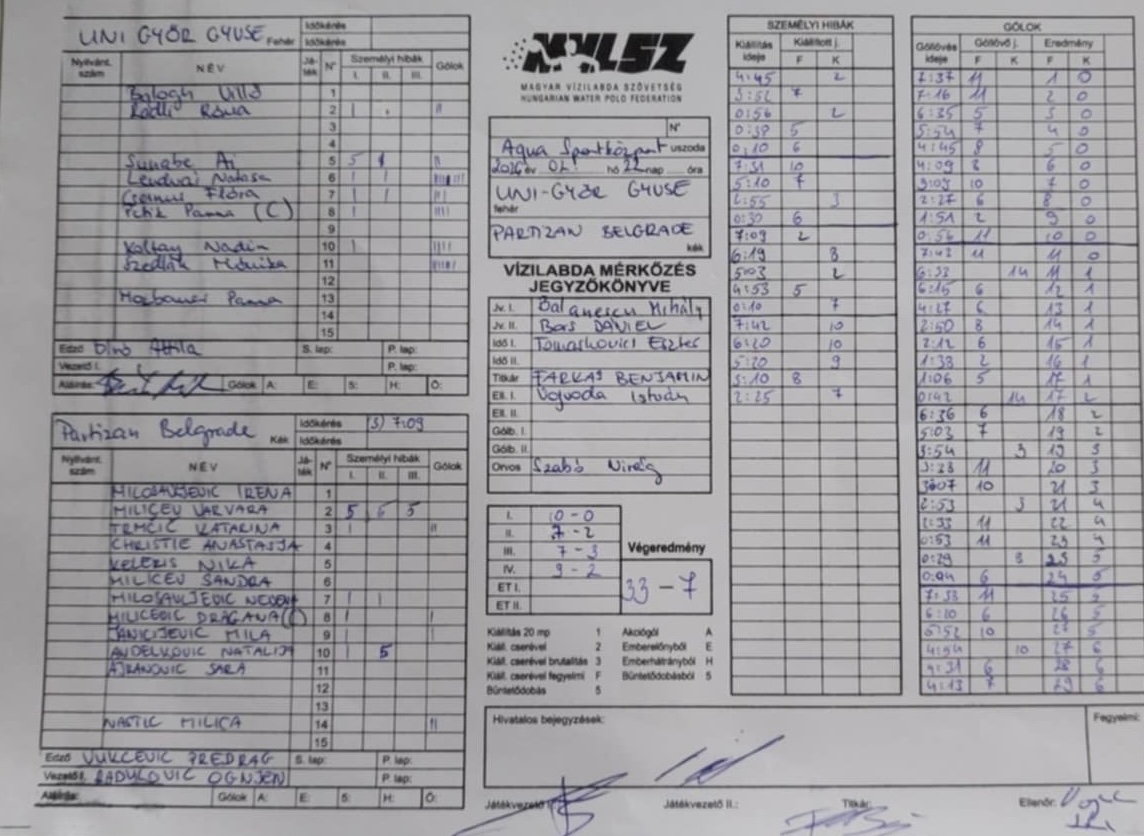 UNI GYŐR GYUSE Fehér
Időkérés
Időkérés
Nyilvánt. szám NÉV Játék N° Személyi hibák I. II. III. Gólok
1
2 I II
3
4
Sunabe Ai 5 5 I II
Lendvai Natasa 6 I I
7 I I III
Petik Panna (C) 8 I IIII
9
Koltay Nadin 10 I IIII
Szedlák Mónika 11
12
Panna 13
14
15
Edző Attila S. lap: P. lap:
Vezető I. P. lap:
Aláírás: Gólok A: E: 5: H: Ö:
Partizan Belgrade Kék
Időkérés 3) 7:09
Időkérés
Nyilvánt. szám NÉV Játék N° Személyi hibák I. II. III. Gólok
MILOSAVLJEVIC IRENA 1
MILICEV VARVARA 2 5 5 5
TRMČIĆ KATARINA 3 I II
CHRISTIE ANASTASJA 4
KELERIS NIKA 5
MILICEV SANDRA 6
MILOSAVLJEDIC 7 I I
DRAGANA (C) 8 I I
JANICIJEVIC MILA 9 I I
ANDELKOVIC NATALIJA 10 I 5 I
AJRANOVIC SARA 11
12
13
NASTIC MILICA 14 II
15
Edző VUKCEVIC PREDRAG S. lap: P. lap:
Vezető I. RADULOVIC OGNJEN P. lap:
Aláírás: Gólok A: E: 5: H: Ö:
MVLSZ
MAGYAR VÍZILABDA SZÖVETSÉG
HUNGARIAN WATER POLO FEDERATION
N°
Aqua Sportközpont uszoda
2026 év 02. hó 22 nap óra
UNI-GYŐR GYUSE
fehér
PARTIZAN BELGRADE
kék
VÍZILABDA MÉRKŐZÉS
JEGYZŐKÖNYVE
Jv. I. Balanescu Mihály
Jv. II. Bors DÁNIEL
Idő I. Tomaskovics Eszter
Idő II.
Titkár FARKAS BENJAMIN
Ell. I. Vojvoda István
Ell. II.
Gólb. I.
Gólb. II.
Orvos Szabó
I. 10-0
II. 7-2
III. 7-3
IV. 9-2
ET I.
ET II.
Végeredmény
33-7
Kiállítás 20 mp 1 Akciógól A
Kiáll. cserével 2 Emberelőnyből E
Kiáll. cserével brutalitás 3 Emberhátrányból H
Kiáll. cserével fegyelmi F Büntetődobásból 5
Büntetődobás 5
SZEMÉLYI HIBÁK
Kiállítás ideje Kiállított j. F K
4:45 2
3:52 7
0:56 2
0:38 5
0:10 6
7:31 10
5:10 7
2:55 3
0:30 6
7:09 2
6:19 8
5:03 2
4:53 5
0:10 7
7:42 10
6:20 10
5:20 9
3:10 8
2:25 7
GÓLOK
Góllövés ideje Góllövő j. F K Eredmény F K
7:37 11 1 0
7:16 11 2 0
6:35 5 3 0
5:54 7 4 0
4:45 8 5 0
4:09 8 6 0
3:09 10 7 0
2:27 6 8 0
1:51 2 9 0
0:56 11 10 0
7:43 11 11 0
6:33 14 11 1
6:15 6 12 1
4:27 6 13 1
2:50 8 14 1
2:12 6 15 1
1:38 2 16 1
1:06 5 17 1
0:42 14 17 2
6:36 6 18 2
5:03 7 19 2
3:54 3 19 3
3:28 11 20 3
10 21 3
2:53 3 21 4
11 22 4
0:53 11 23 4
0:29 3 23 5
0:04 6 24 5
7:38 11 25 5
6:20 6 26 5
5:52 10 27 5
4:54 10 27 6
4:31 6 28 6
4:13 7 29 6
Hivatalos bejegyzések:
Fegyelmi:
Játékvezető I.: Játékvezető II.: Titkár: Ellenőr: